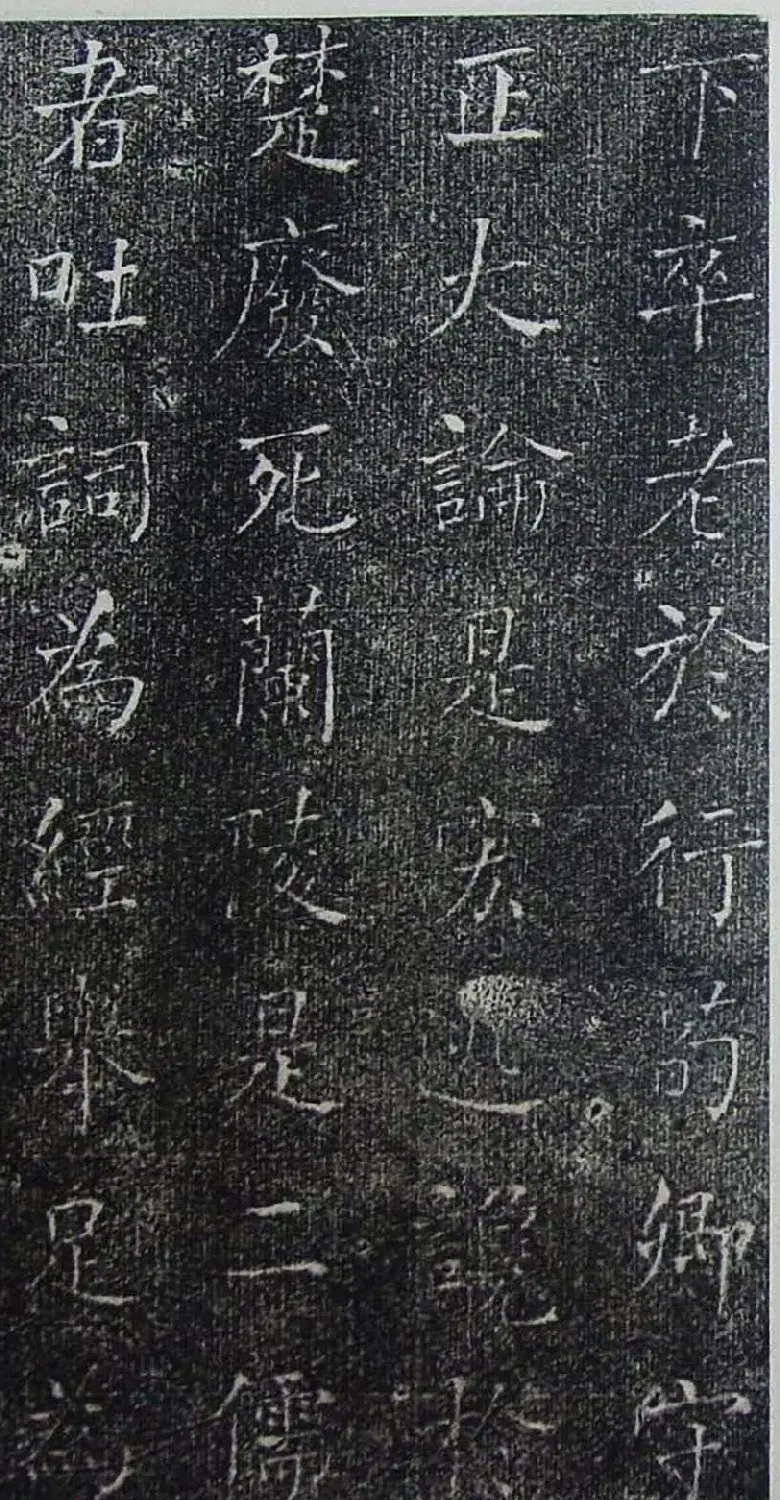 下卒老於行荀卿守
正大論是宏逃讒於
楚廢死蘭陵是二儒
者吐詞為經舉足為